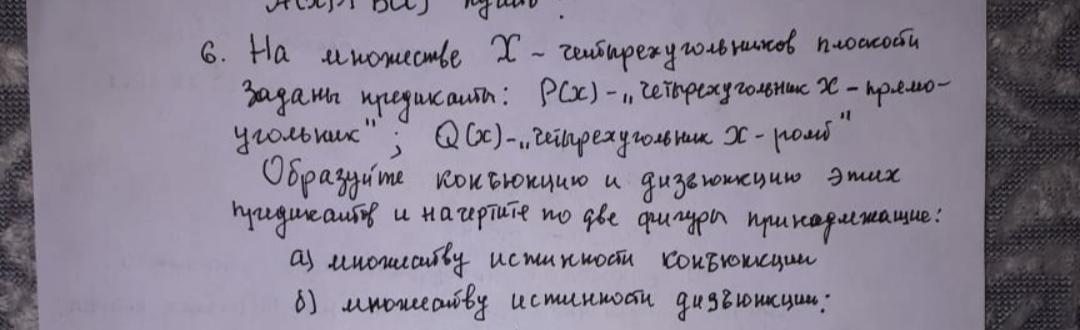 6. На множестве X - четырехугольников плоскости
заданы предикаты: P(x) - „четырехугольник X - прямо-
угольник"; Q(x) - „четырехугольник X - ромб"
Образуйте конъюкцию и дизъюкцию этих
предикатов и начертите по две фигуры принадлежащие:
а) множеству истинности конъюнкции
б) множеству истинности дизъюнкции: